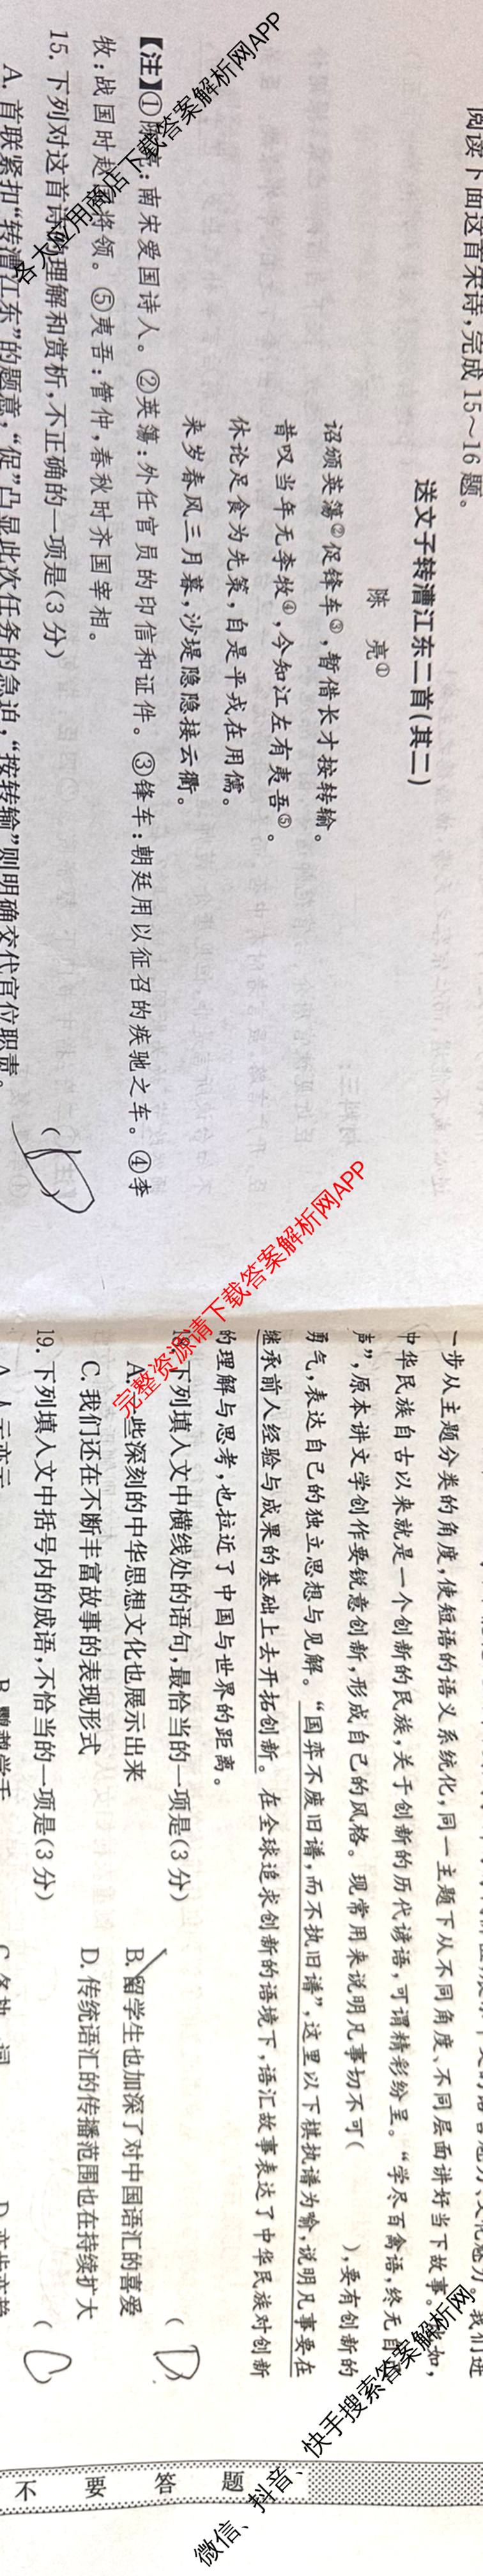 阅读下面这首宋诗,完成15～16题。
送文子转漕江东二首(其二)
陈 亮①
诏颁英簜②促锋车③,暂借长才按转输。
昔叹当年无李牧④,今知江左有夷吾⑤。
休论足食为先策,自是平戎在用儒。
来岁春风三月暮,沙堤隐隐接云衢。
【注】①陈亮:南宋爱国诗人。②英簜:外任官员的印信和证件。③锋车:朝廷用以征召的疾驰之车。④李
牧:战国时赵国将领。⑤夷吾:管仲,春秋时齐国宰相。
15. 下列对这首诗的理解和赏析,不正确的一项是(3分)
( D
A. 首联紧扣“转漕江东”的题意,“促”凸显此次任务的急迫,“按转输”则明确交代官位职责。
一步从主题分类的角度,使短语的语义系统化,同一主题下从不同角度、不同层面讲好当下故事。例如,
中华民族自古以来就是一个创新的民族,关于创新的历代谚语,可谓精彩纷呈。“学尽百禽语,终无自己
声”,原本讲文学创作要锐意创新,形成自己的风格。现常用来说明凡事切不可( ),要有创新的
勇气,表达自己的独立思想与见解。“国弈不废旧谱,而不执旧谱”,这里以下棋执谱为喻,说明凡事要在
继承前人经验与成果的基础上去开拓创新。在全球追求创新的语境下,语汇故事表达了中华民族对创新
的理解与思考,也拉近了中国与世界的距离。
18. 下列填入文中横线处的语句,最恰当的一项是(3分)
( D
A. 一些深刻的中华思想文化也展示出来
B. 留学生也加深了对中国语汇的喜爱
C. 我们还在不断丰富故事的表现形式
D. 传统语汇的传播范围也在持续扩大
19. 下列填入文中括号内的成语,不恰当的一项是(3分)
( C
A. 人云亦云
B. 鹦鹉学舌
C. 各执一词
D. 亦步亦趋
不 要 答 题
各大应用商店下载答案解析网APP
完整资源请下载答案解析网APP
微信、抖音、快手搜索答案解析网